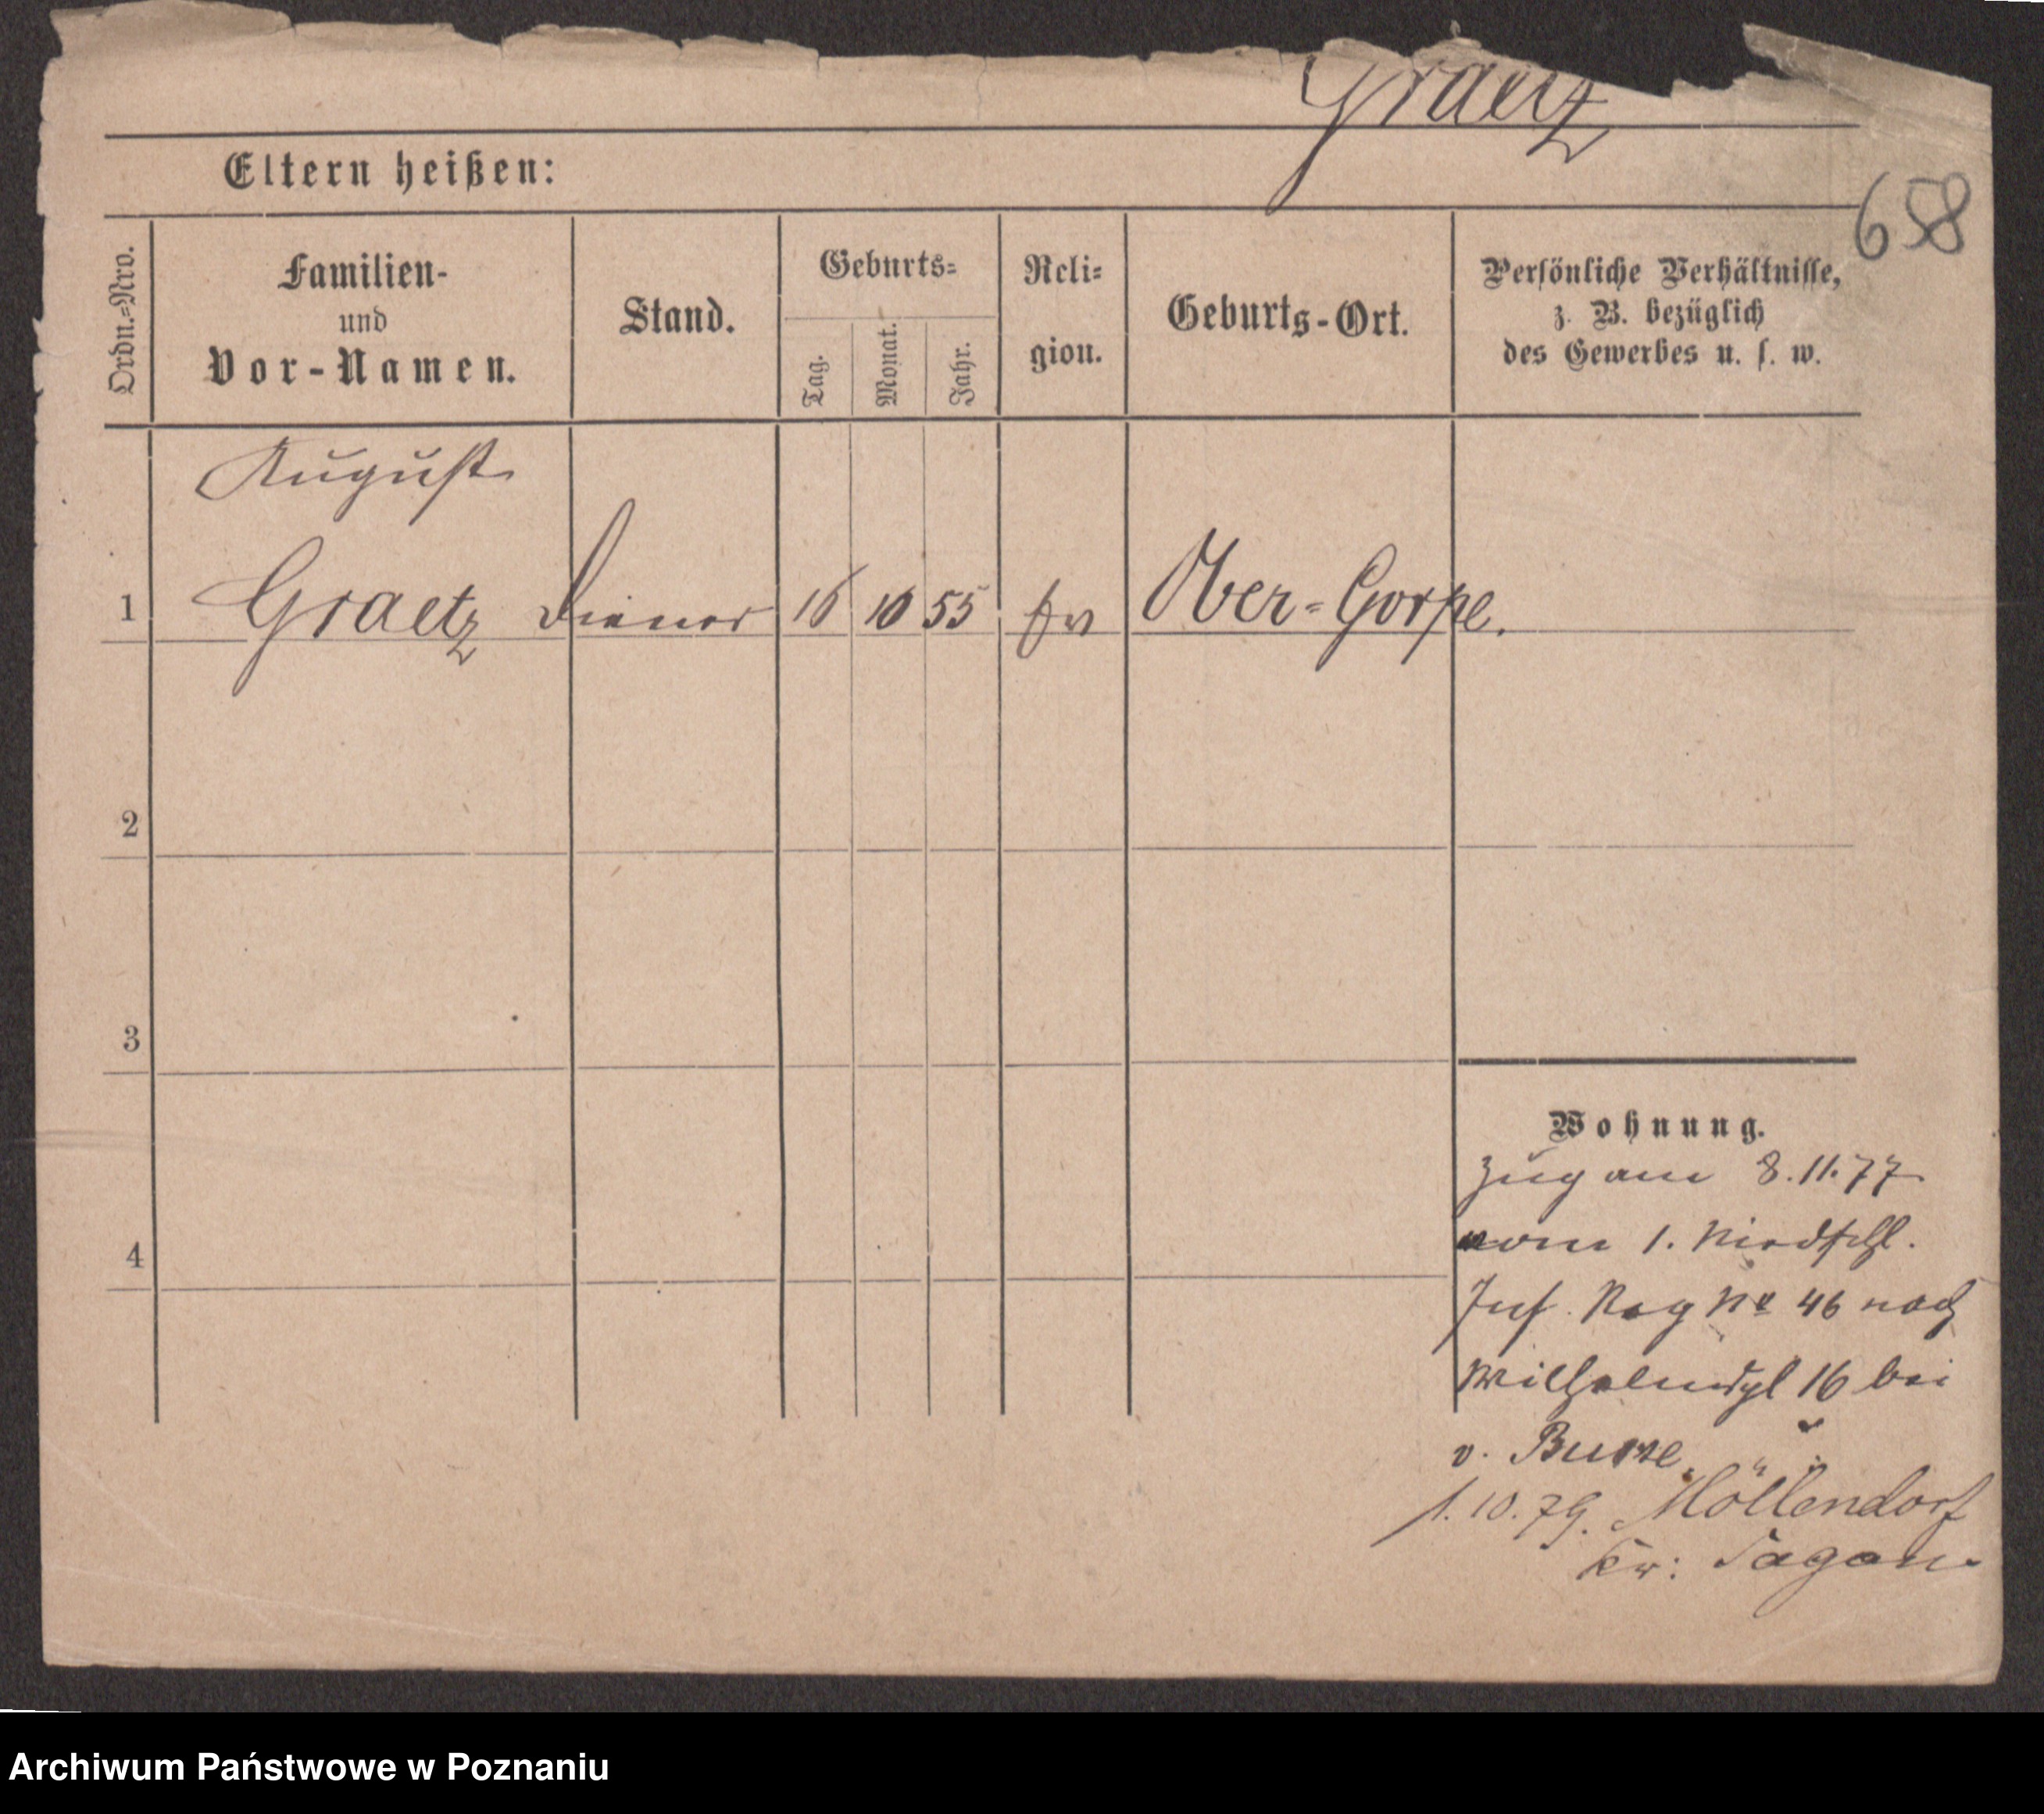 Graetz
Eltern heißen:
658
Ordn.=Nro.
Familien-
und
Vor-Namen.
Stand.
Geburts=
Tag.
Monat.
Jahr.
Reli=
gion.
Geburts-Ort.
Persönliche Verhältnisse,
z. B. bezüglich
des Gewerbes u. s. w.
August
1 Graetz Diener 16 10 55 ev Ober=Gorpe.
2
3
4
Wohnung.
Zug am 8.11.77
vom 1. Niedschl.
Inf. Reg No 46 nach
Wilhelmspl 16 bei
v. Busse
1.10.79. Möllendorf
Kr: Sagan.
Archiwum Państwowe w Poznaniu